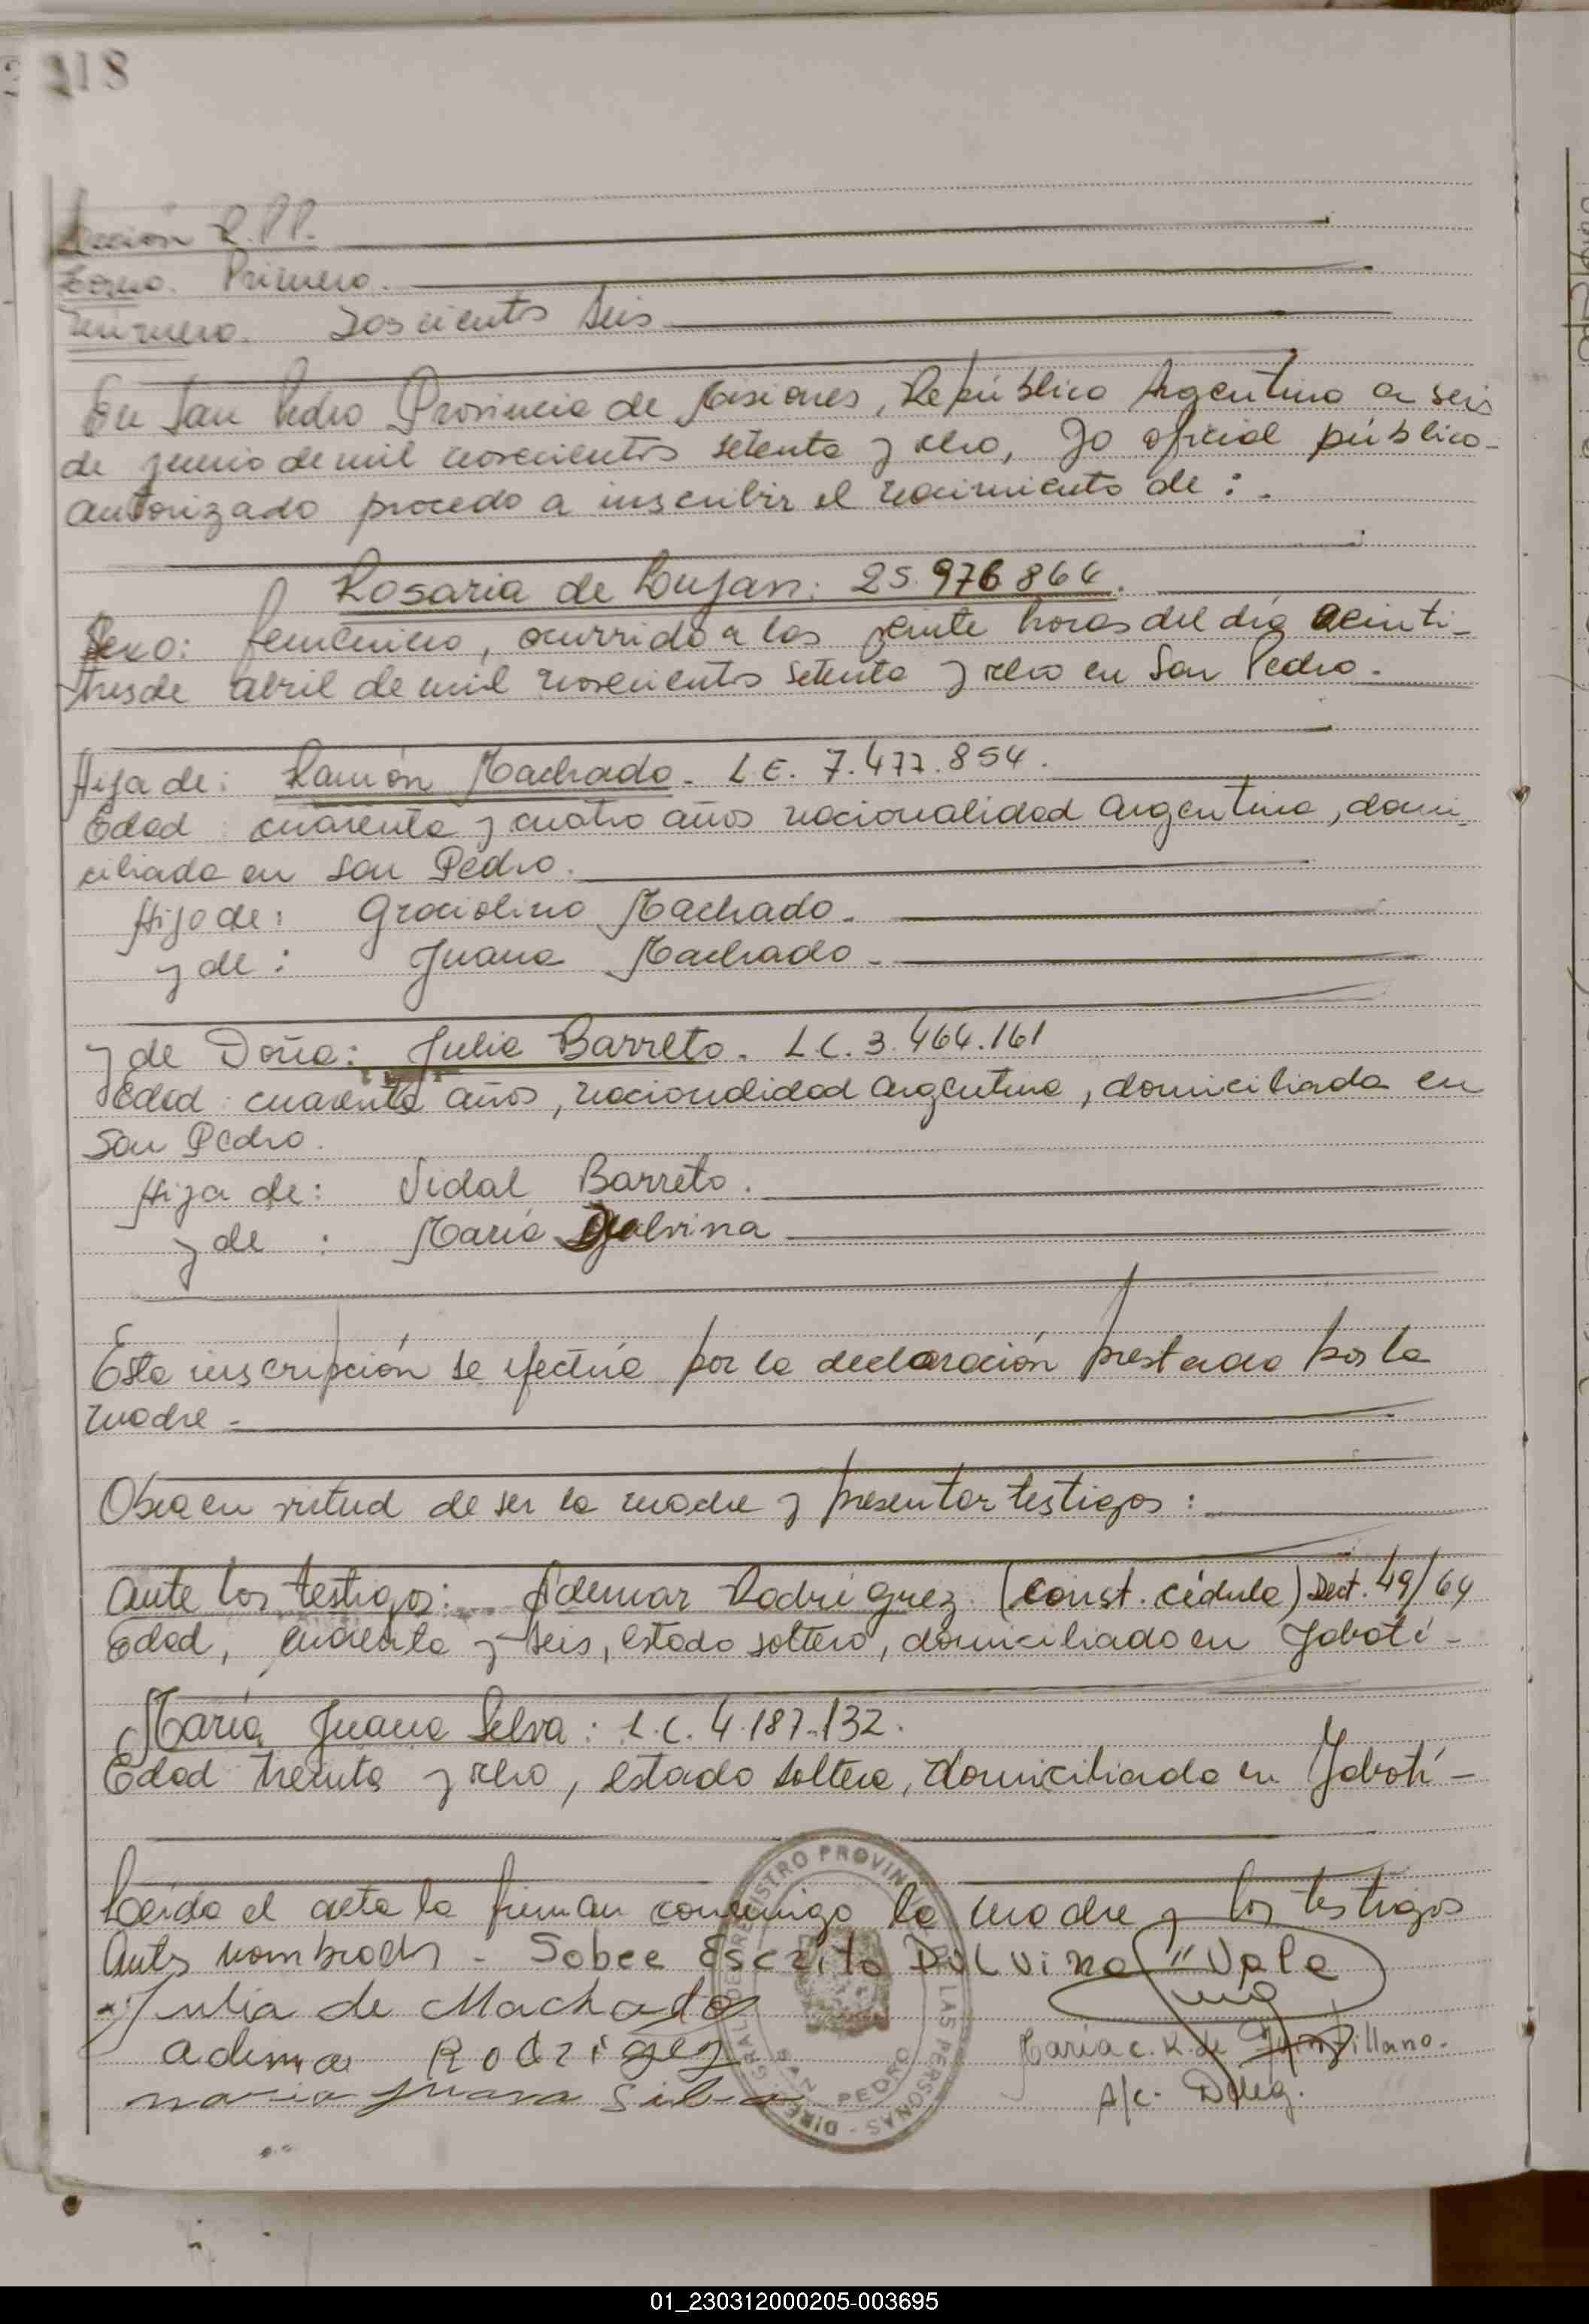 218
Sección D.P.P.
Tomo. Primero.
Número. Doscientos Seis
En San Pedro Provincia de Misiones, República Argentina a seis
de junio de mil novecientos setenta y ocho, Yo oficial público
autorizado procedo a inscribir el nacimiento de :
Rosaria de Lujan: 25.976.864.
Sexo: femenino, ocurrido a las veinte horas del día veinti-
tres de abril de mil novecientos setenta y ocho en San Pedro.
Hija de: Ramón Machado. L.E. 7.477.854.
Edad : cuarenta y cuatro años nacionalidad argentina, domi-
ciliado en San Pedro.
Hijo de: Graciolino Machado.
y de : Juana Machado.
y de Doña: Julia Barreto. L.C. 3.464.161
Edad : cuarenta años, nacionalidad argentina, domiciliada en
San Pedro.
Hija de: Vidal Barreto.
y de : María Dulvina
Esta inscripción se efectúa por la declaración prestada por la
madre -
Obra en virtud de ser la madre y presentar testigos :
Ante los testigos: Ademar Rodríguez (const. cédula) Dect. 49/64
Edad, cuarenta y seis, estado soltero, domiciliado en Jabotí -
María Juana Selva : L.C. 4.187.132.
Edad treinta y ocho, estado soltera, domiciliada en Jabotí -
Leída el acta la firman conmigo la madre y los testigos
antes nombrados - Sobre Escrito Dulvina "Vale
Julia de Machado
adimar Rodriguez
maria Juana Silva
María C. K. de
A/c. Deleg.
DIRE GRAL DE REGISTRO PROVIN DE LAS PERSONAS
SAN PEDRO
01_230312000205-003695